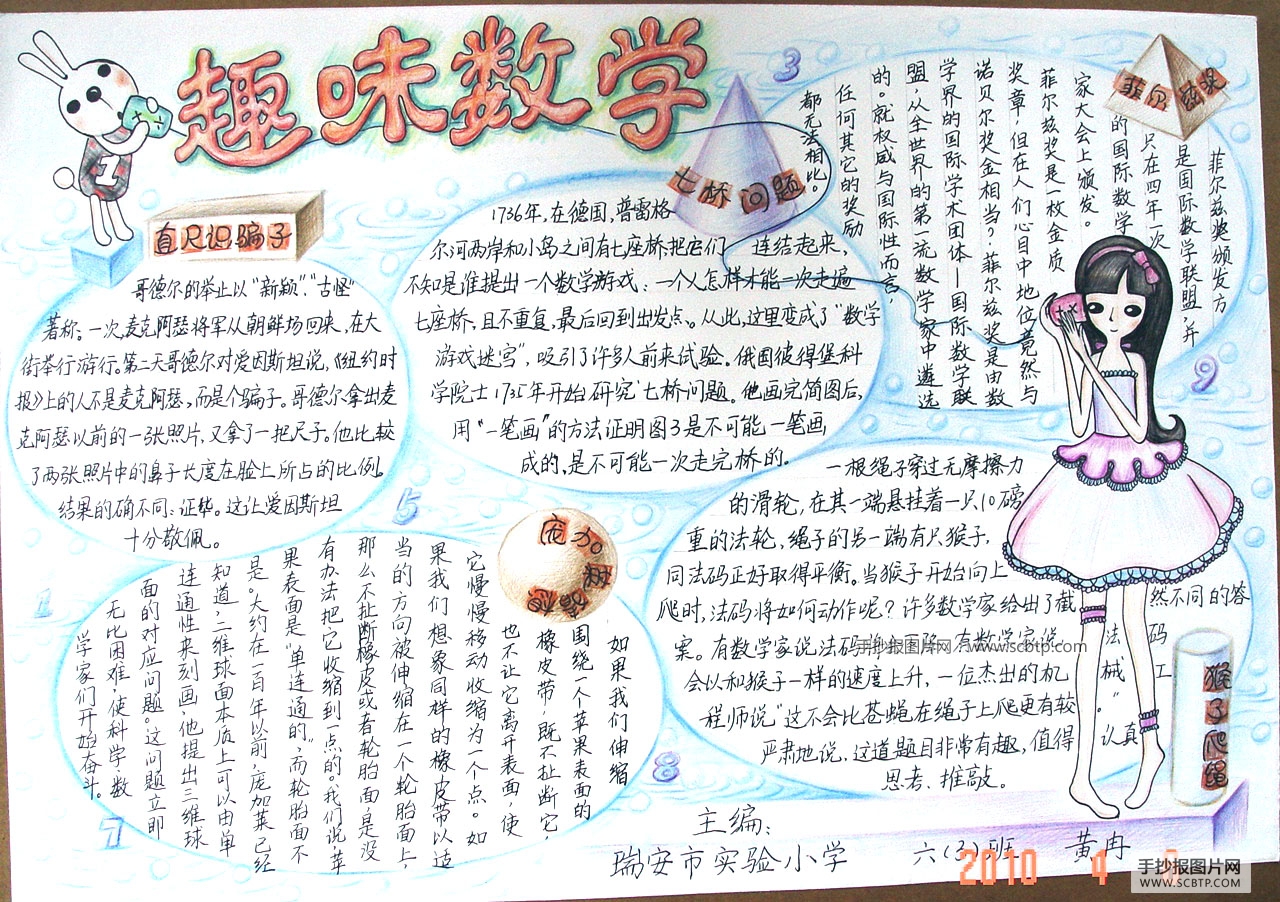 趣味数学
直尺识骗子
哥德尔的举止以“新颖”、“古怪”
著称。一次，麦克阿瑟将军从朝鲜场回来，在大
街举行游行。第二天哥德尔对爱因斯坦说，《纽约时
报》上的人不是麦克阿瑟，而是个骗子。哥德尔拿出麦
克阿瑟以前的一张照片，又拿了一把尺子。他比较
了两张照片中的鼻子长度在脸上所占的比例。
结果的确不同：证毕。这让爱因斯坦
十分敬佩。
七桥问题
1736年，在德国，普雷格
尔河两岸和小岛之间有七座桥把它们 连结起来，
不知是谁提出一个数学游戏：一个人怎样才能一次走遍
七座桥，且不重复，最后回到出发点。从此，这里变成了“数学
游戏迷宫”，吸引了许多人前来试验。俄国彼得堡科
学院士1735年开始研究七桥问题。他画完简图后，
用“一笔画”的方法证明图3是不可能一笔画
成的，是不可能一次走完桥的。
菲尔兹奖
菲尔兹奖颁发方
是国际数学联盟，并
只在四年一次
的国际数学
家大会上颁发。
菲尔兹奖是一枚金质
奖章，但在人们心目中地位竟然与
诺贝尔奖金相当？菲尔兹奖是由数
学界的国际学术团体—国际数学联
盟，从全世界的第一流数学家中遴选
的。就权威与国际性而言，
任何其它的奖励
都无法相比。
庞加莱猜想
如果我们伸缩
围绕一个苹果表面的
橡皮带，既不扯断它，
也不让它离开表面，使
它慢慢移动收缩为一个点。如
果我们想象同样的橡皮带以适
当的方向被伸缩在一个轮胎面上，
那么不扯断橡皮或者轮胎面是没
有办法把它收缩到一点的。我们说苹
果表面是“单连通的”，而轮胎面不
是。大约在一百年以前，庞加莱已经
知道，二维球面本质上可以由单
连通性来刻画，他提出三维球
面的对应问题。这问题立即
无比困难，使科学、数
学家们开始奋斗。
猴子爬绳
一根绳子穿过无摩擦力
的滑轮，在其一端悬挂着一只10磅
重的法轮，绳子的另一端有只猴子，
同法码正好取得平衡。当猴子开始向上
爬时，法码将如何动作呢？许多数学家给出了截 然不同的答
案。有数学家说法码 法 码
会以和猴子一样的速度上升，一位杰出的机 械 工
程师说“这不会比苍蝇在绳子上爬更有较 ”。
严肃地说，这道题目非常有趣，值得 认真
思考、推敲。
主编：
瑞安市实验小学 六（2）班 黄冉
1
3
5
7
8
9
手抄报图片网 //www.scbtp.com
2010 4
手抄报图片网
WWW.SCBTP.COM